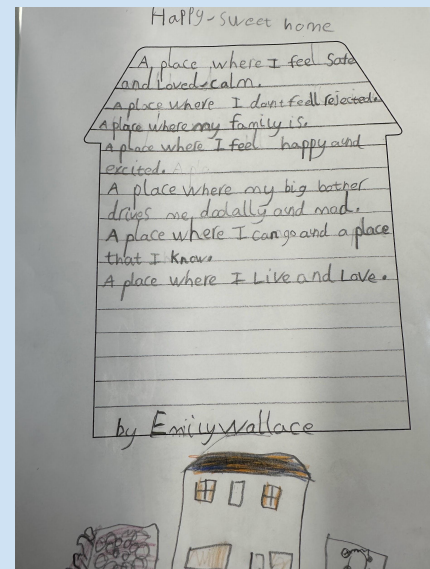 Happy-sweet home
A place where I feel safe
and loved calm.
A place where I dont feell rejected.
A place where my family is.
A place where I feel happy and
excited.
A place where my big bother
drives me, dodally and mad.
A place where I can go and a place
that I know.
A place where I Live and Love.
by Emily Wallace